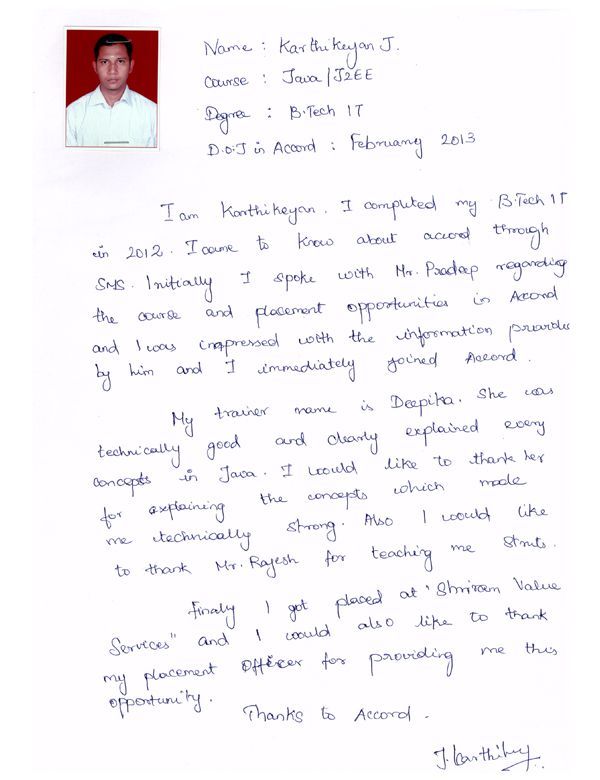 Name : Karthikeyan J.
Course : Java/J2EE
Degree : B.Tech IT
D.O.J in Accord : February 2013
I am Karthikeyan. I completed my B.Tech IT
in 2012. I came to know about accord through
SMS. Initially I spoke with Mr. Pradeep regarding
the course and placement opportunities in Accord
and I was impressed with the information provide
by him and I immediately joined Accord.
My trainer name is Deepika. She was
technically good and clearly explained every
concepts in Java. I would like to thank her
for explaining the concepts which made
me technically strong. Also I would like
to thank Mr. Rajesh for teaching me Struts.
Finally I got placed at 'Shriram Value
Services" and I would also like to thank
my placement officer for providing me this
opportunity.
Thanks to Accord.
J. Karthikey